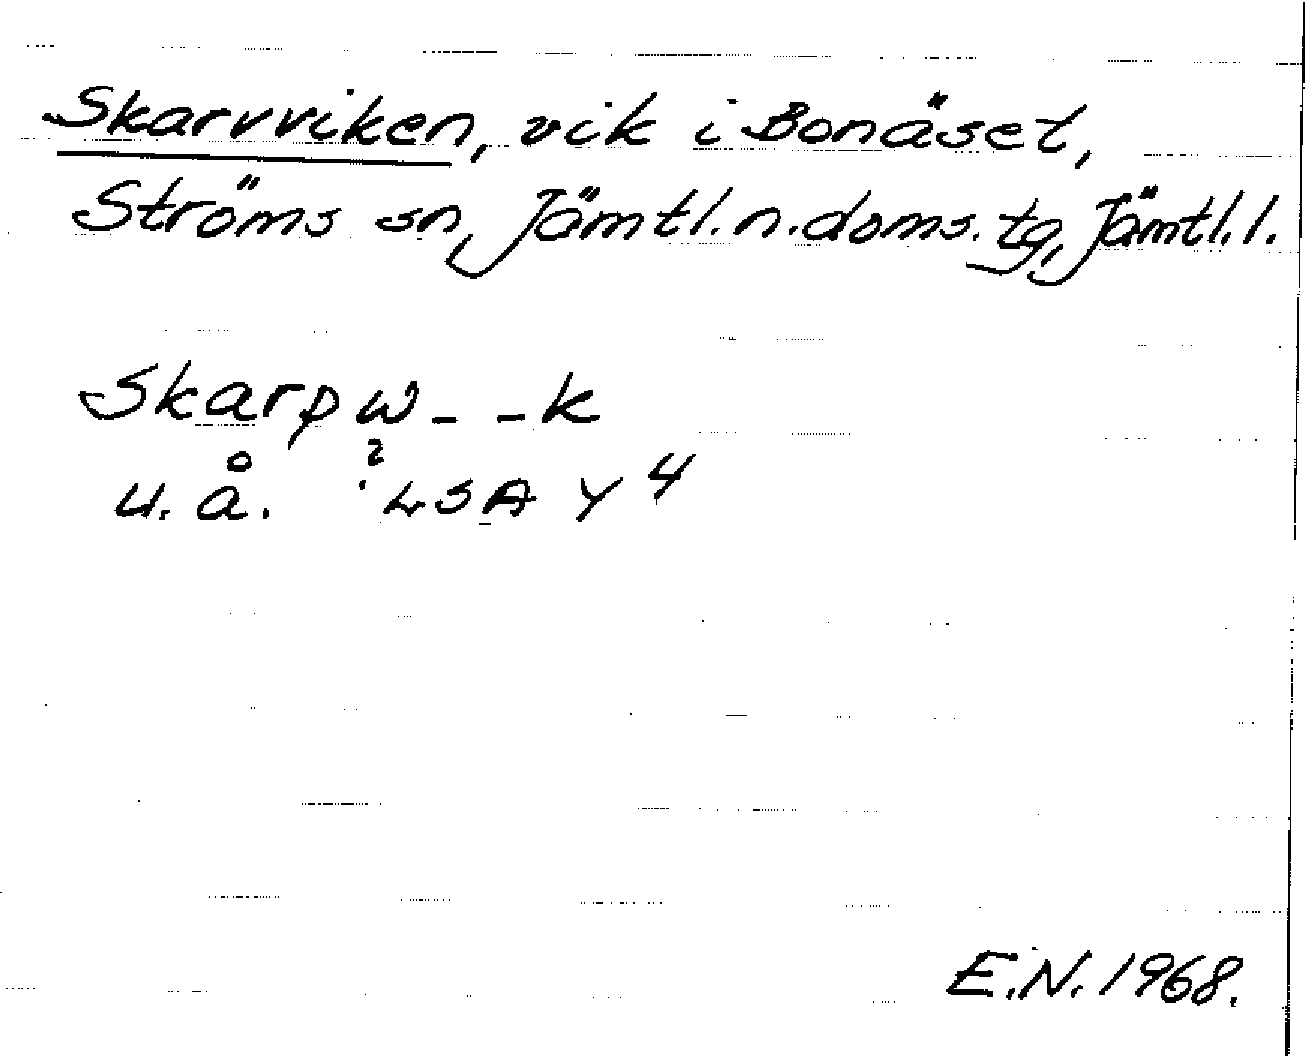 Skarvviken, vik i Bonäset,
Ströms sn, Jämtl.n.doms.tg, Jämtl.l.
Skarpw - - k
u.å. LSA Y 4
E.N. 1968.